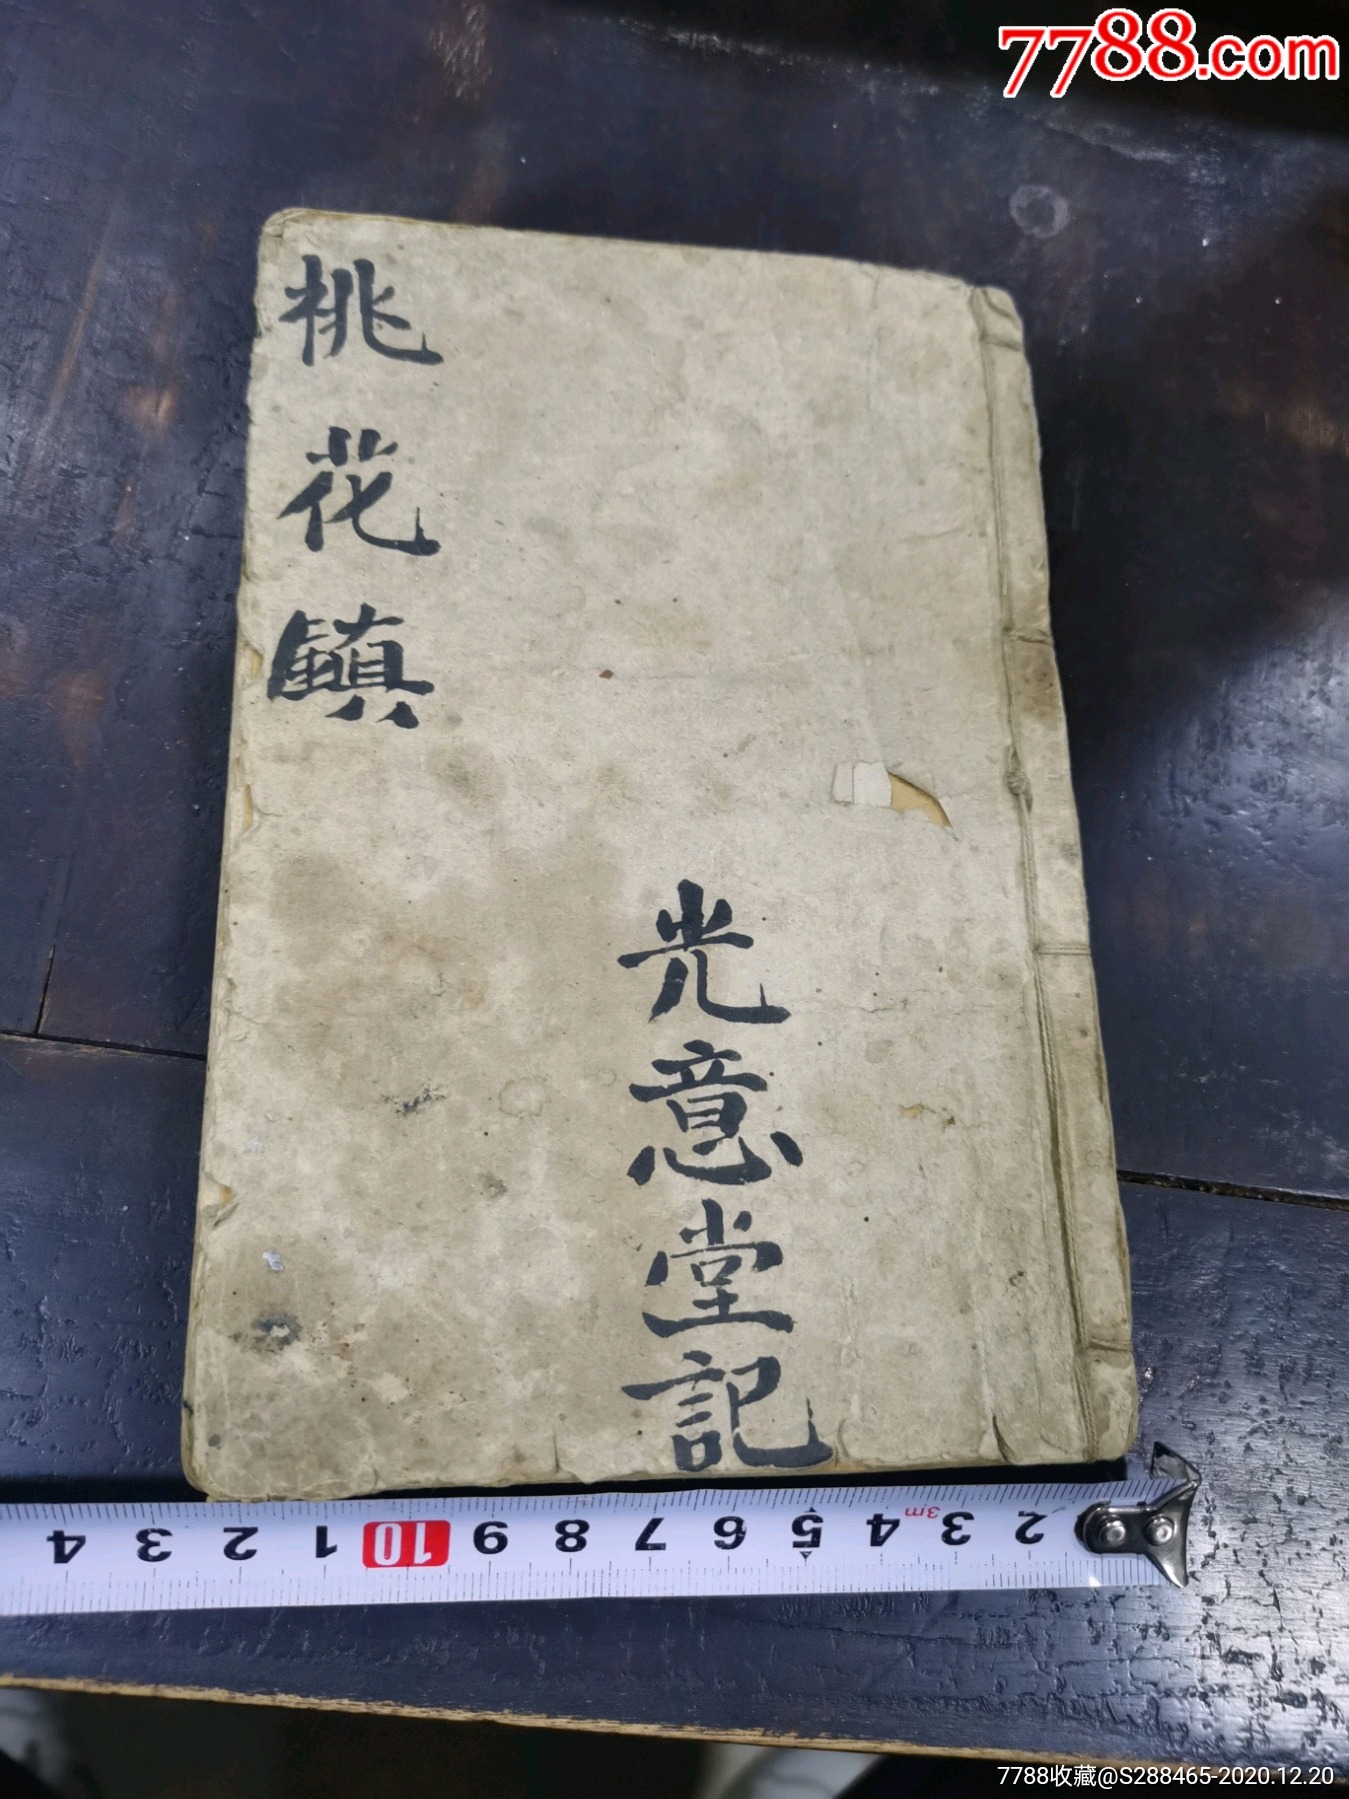 7788.com
桃花鎮
光意堂記
4 3 2 1 10 9 8 7 6 5 4 3m 3 2
7788收藏@S288465-2020.12.20